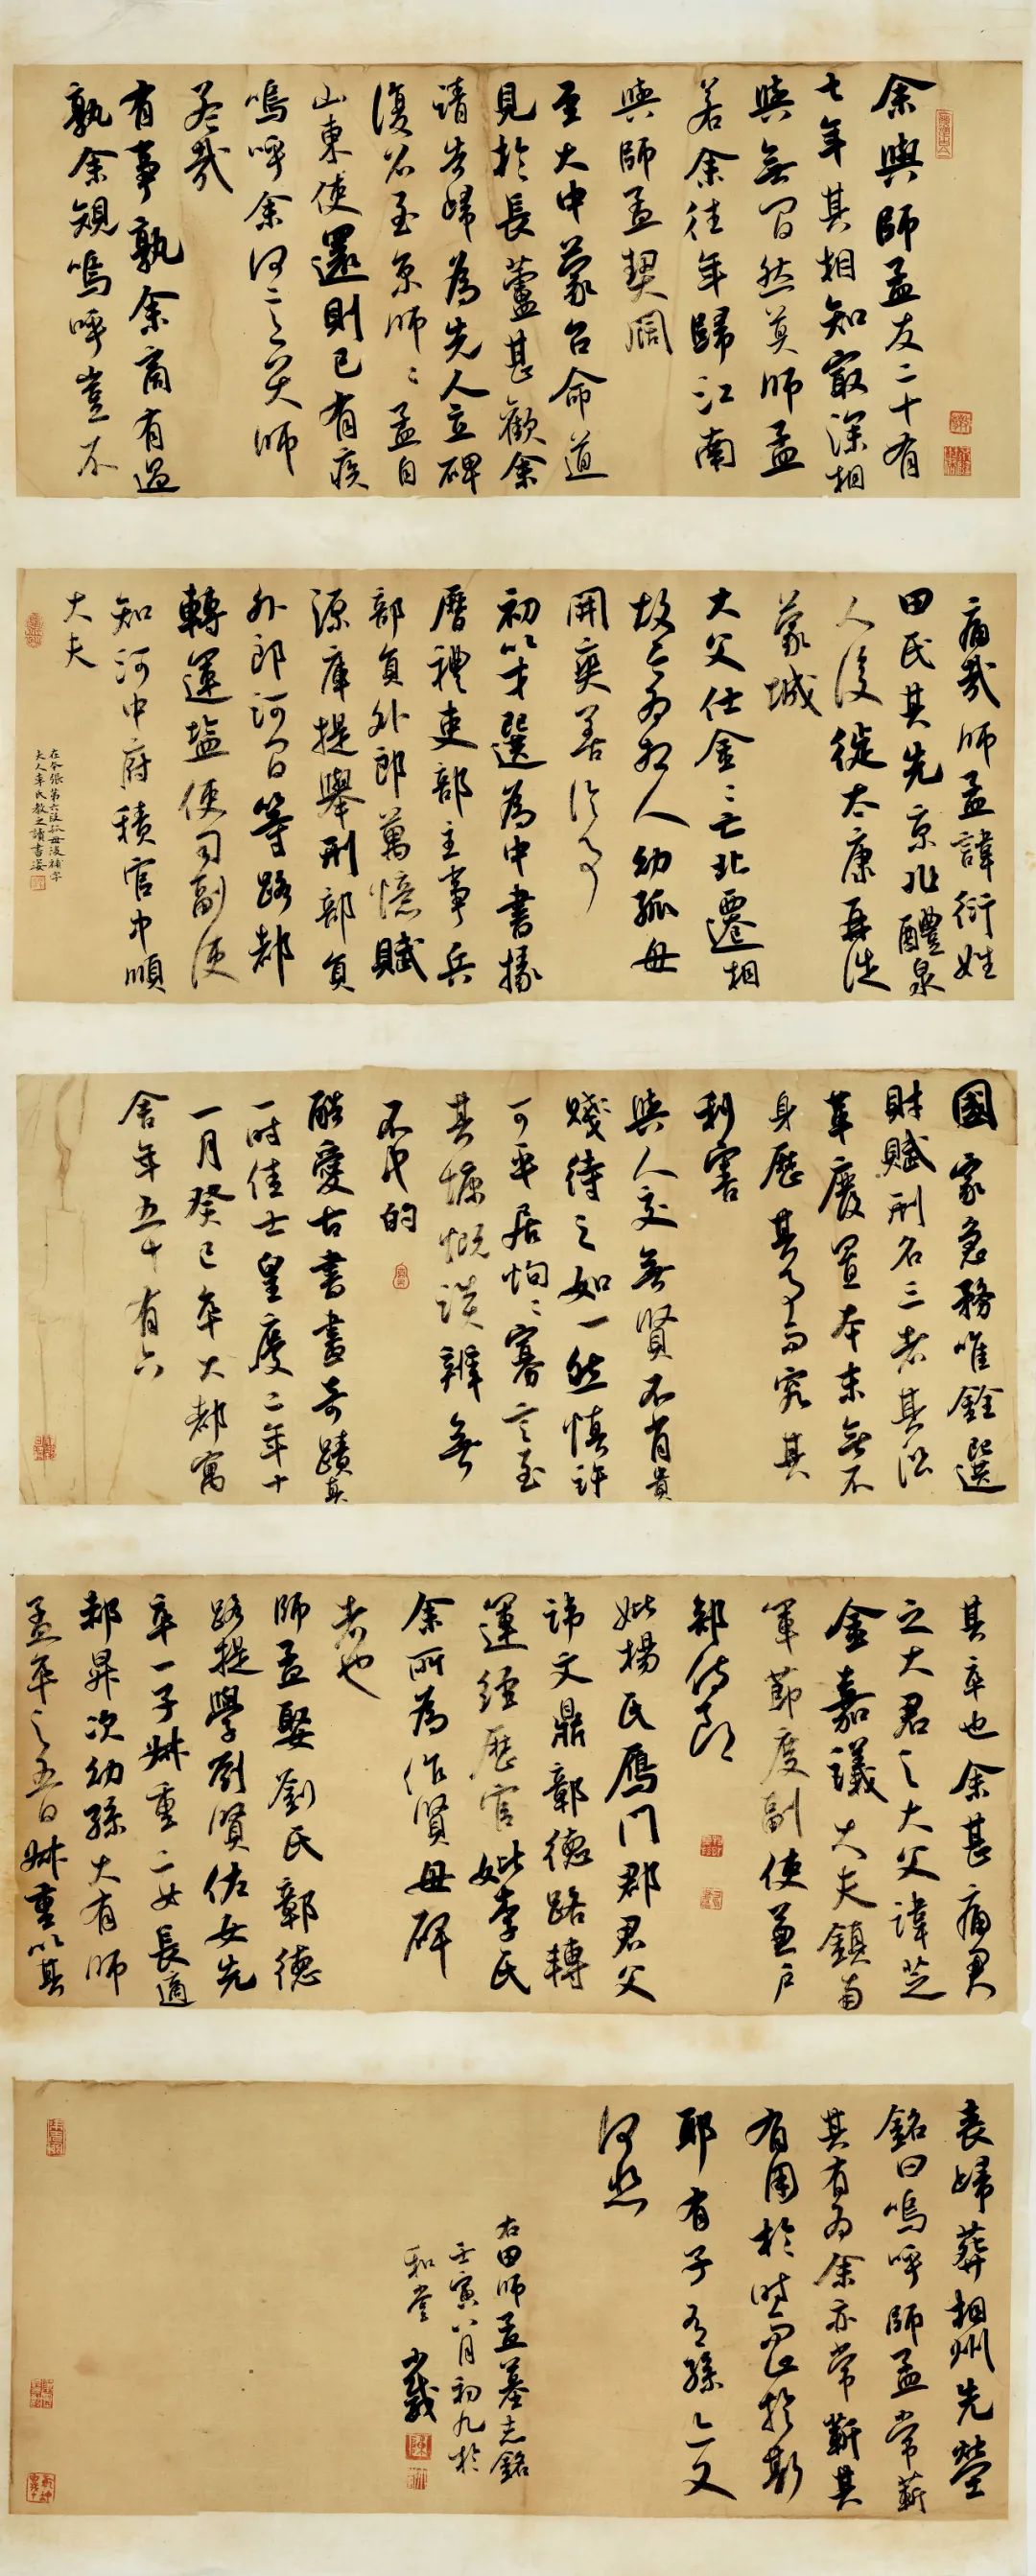 余與師孟友二十有
七年其相知最深相
與無間然莫師孟
若余往年歸江南
與師孟契闊
至大中蒙召命道
見於長蘆甚歡余
請告歸為先人立碑
復召至京師〻孟自
山東使還則已有疾
嗚呼余何言哭師
孟哉
有事孰余商有過
孰余規嗚呼豈不
痛哉師孟諱衍姓
田氏其先京兆醴泉
人後徙太康再徙
蒙城
大父仕金〻亡北遷相
故今為相人幼孤母
開爽善論事
初以才選為中書掾
曆禮吏部主事兵
部員外郎萬憶賦
源庫提舉刑部員
外郎河間等路都
轉運鹽使司副使
知河中府積官中順
大夫
在本張第六孤母後補字
夫人李氏教之讀書姿
國家急務唯銓選
財賦刑名三者其沿
革廢置本末無不
身歷其事而究其
利害
與人交無賢不肖貴
賤待之如一然慎許
可平居恂〻寡言至
其慷慨談辯無
不中的
酷愛古書畫奇蹟真
一時佳士皇慶二年十
一月癸巳卒大都寓
舍年五十有六
其卒也余甚痛君
之大君之大父諱芝
金嘉議大夫鎮南
軍節度副使兼戶
部侍郎
妣楊氏鴈門郡君父
諱文鼎彰德路轉
運經歷官妣李氏
余所為作賢母碑
者也
師孟娶劉氏彰德
路提學劉賢佑女先
卒一子叔重二女長適
郝昇次幼孫大有師
孟卒之五日叔重以其
喪歸葬相州先塋
銘曰嗚呼師孟常蘄
其有為余亦常蘄其
有用於時而止於斯
耶有子有孫〻又
何悲
右田師孟墓志銘
壬寅八月初九於
和堂 少戡